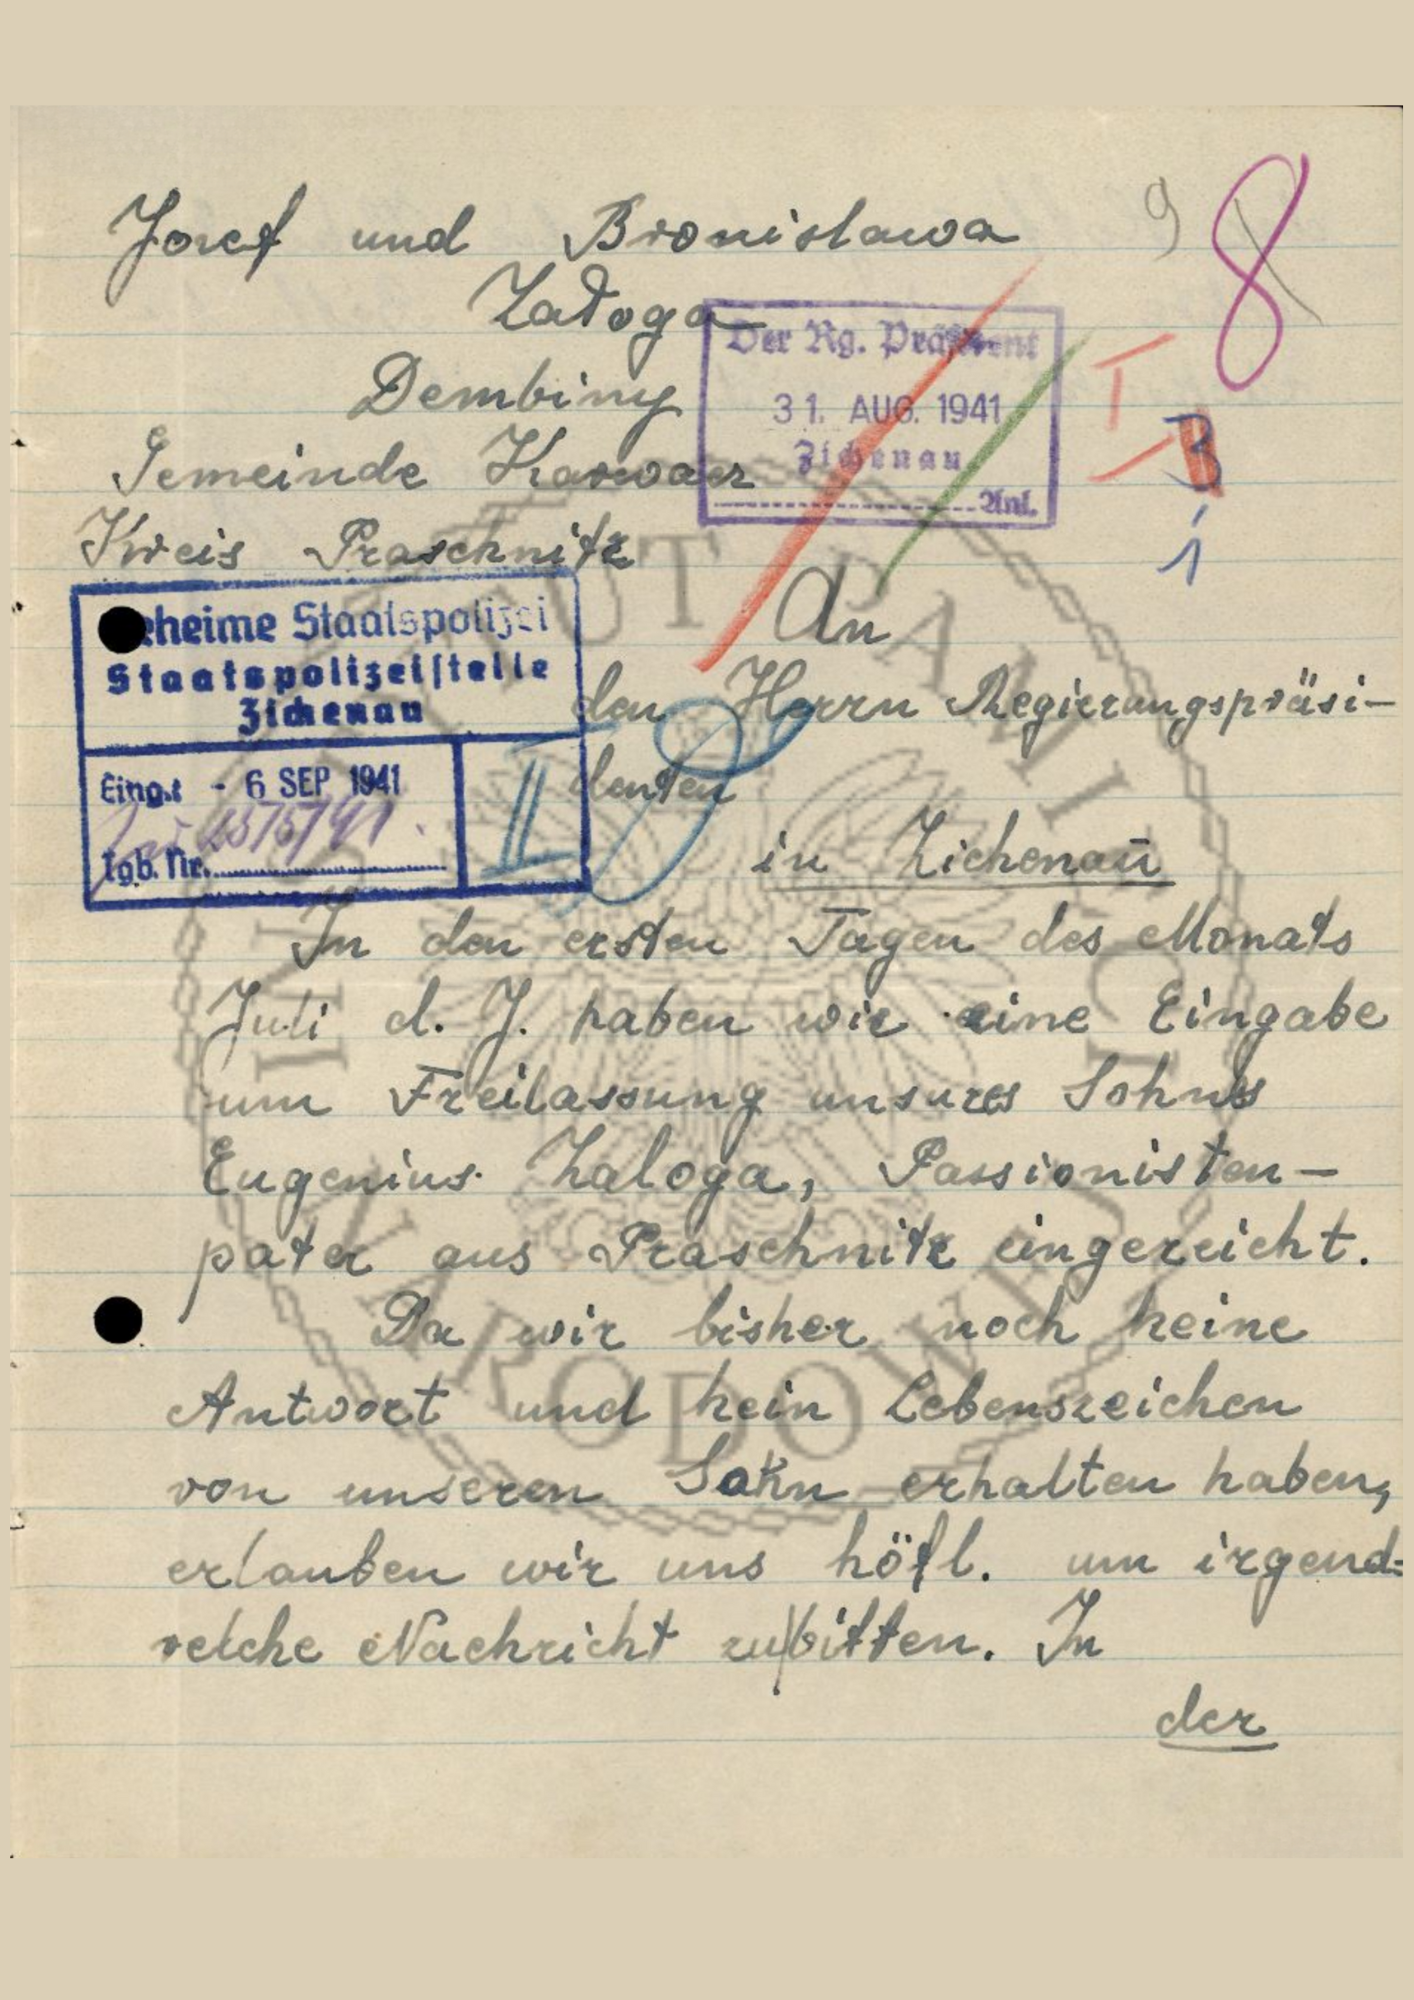 9 8
Josef und Bronislawa
Załoga
Der Rg. Präsident
Dembiny
31. AUG. 1941
I
Gemeinde Karwacz
Zichenau
B
Anl.
Kreis Praschnitz
1
Geheime Staatspolizei
An
Staatspolizeistelle
Zichenau
den Herrn Regierungspräsi-
Eing.: - 6 SEP 1941
denten
II
Tgb. Nr.
in Zichenau
In den ersten Tagen des Monats
Juli d. J. haben wir eine Eingabe
um Freilassung unseres Sohnes
Eugenius Zaloga, Passionisten-
pater aus Praschnitz eingereicht.
Da wir bisher noch keine
Antwort und kein Lebenszeichen
von unseren Sohn erhalten haben,
erlauben wir uns höfl. um irgend=
welche Nachricht zu bitten. In
der
INSTYTUT PAMIĘCI NARODOWEJ